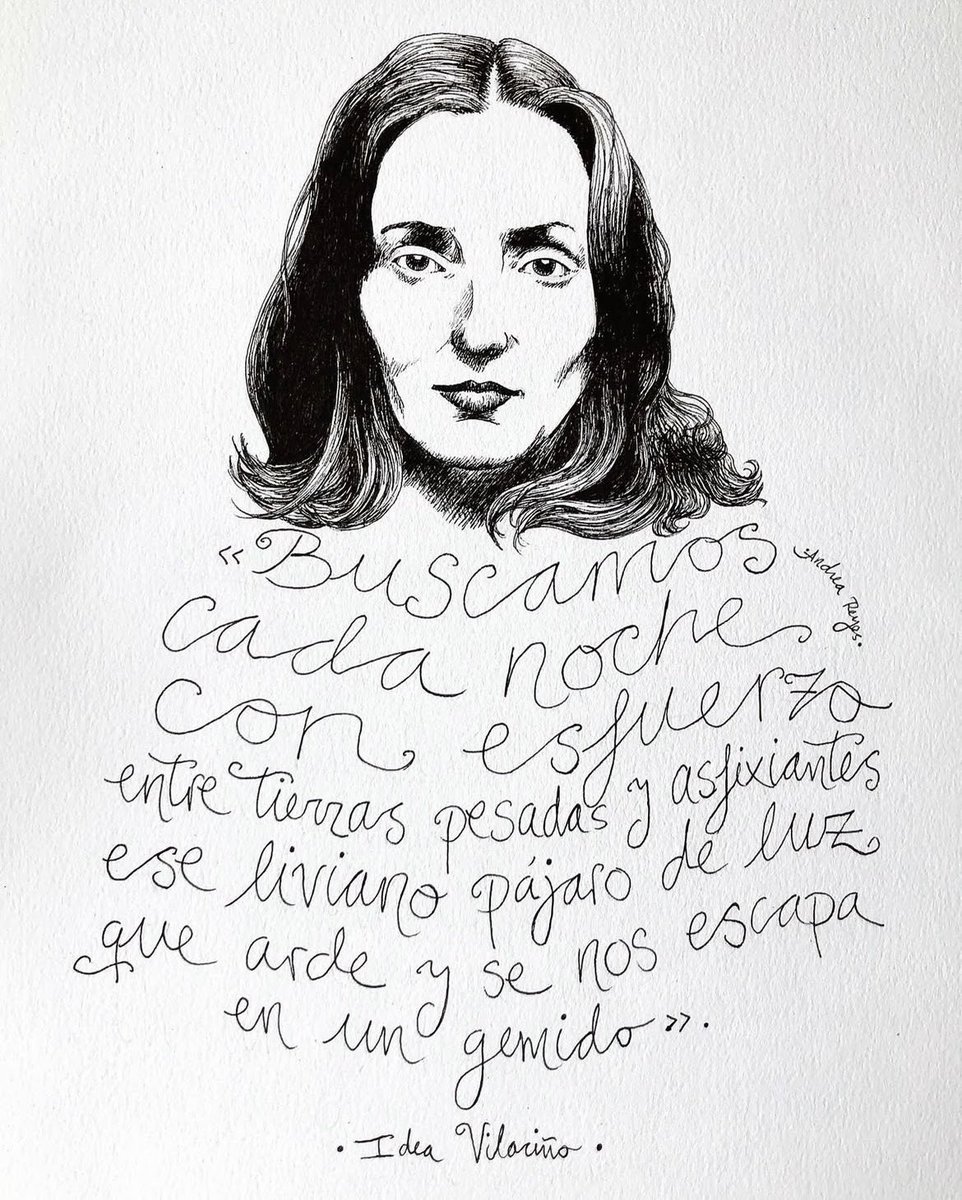 «Buscamos
·Andrea Reyes·
cada noche
con esfuerzo
entre tierras pesadas y asfixiantes
ese liviano pájaro de luz
que arde y se nos escapa
en un gemido».
·Idea Vilariño·